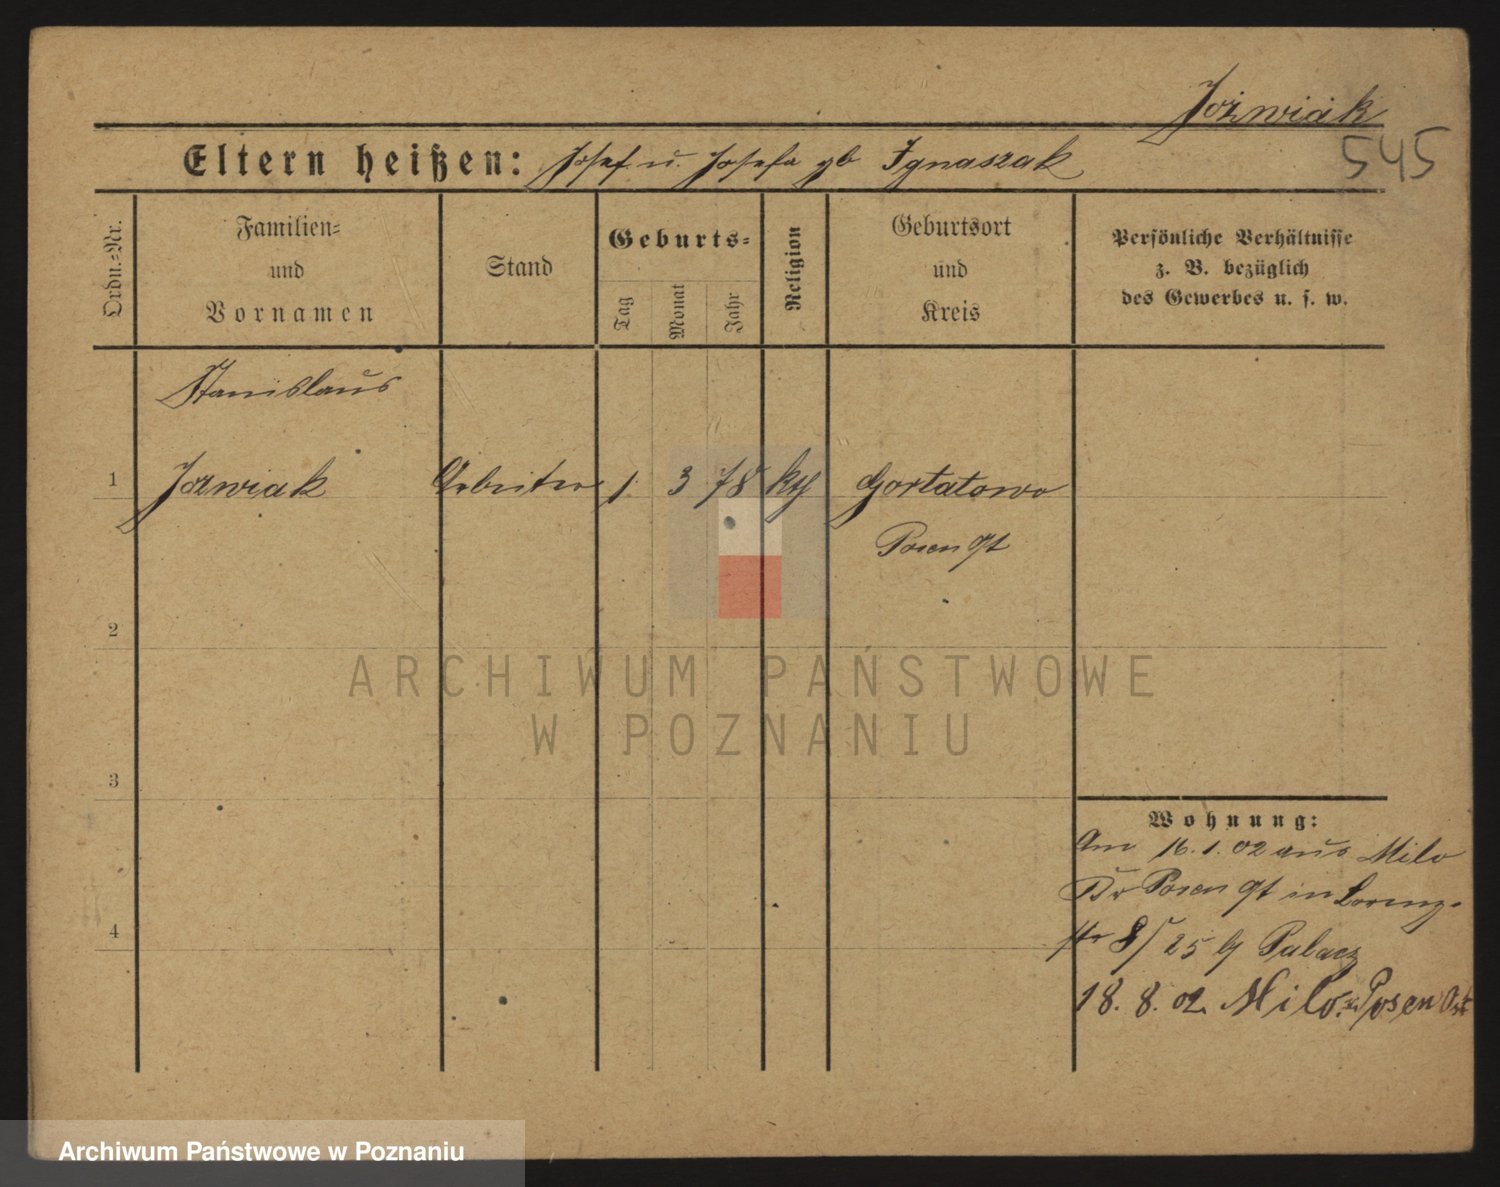 Jozwiak
545
Eltern heißen: Josef u. Josefa gb Ignaszak
Ordn.-Nr.
Familien- und Vornamen
Stand
Geburts-
Tag
Monat
Jahr
Religion
Geburtsort und Kreis
Persönliche Verhältnisse
z. B. bezüglich
des Gewerbes u. s. w.
Stanislaus
1 Jozwiak Arbeiter 1. 3 78 kth Gortatowo
Posen Ost
2
ARCHIWUM PAŃSTWOWE
W POZNANIU
3
Wohnung:
Am 16.1.02 aus Milo
Kr Posen Ost in
str 8/ 25 b/ Palacz
4
18. 8. 02. Milo. Kr. Posen Ost
Archiwum Państwowe w Poznaniu